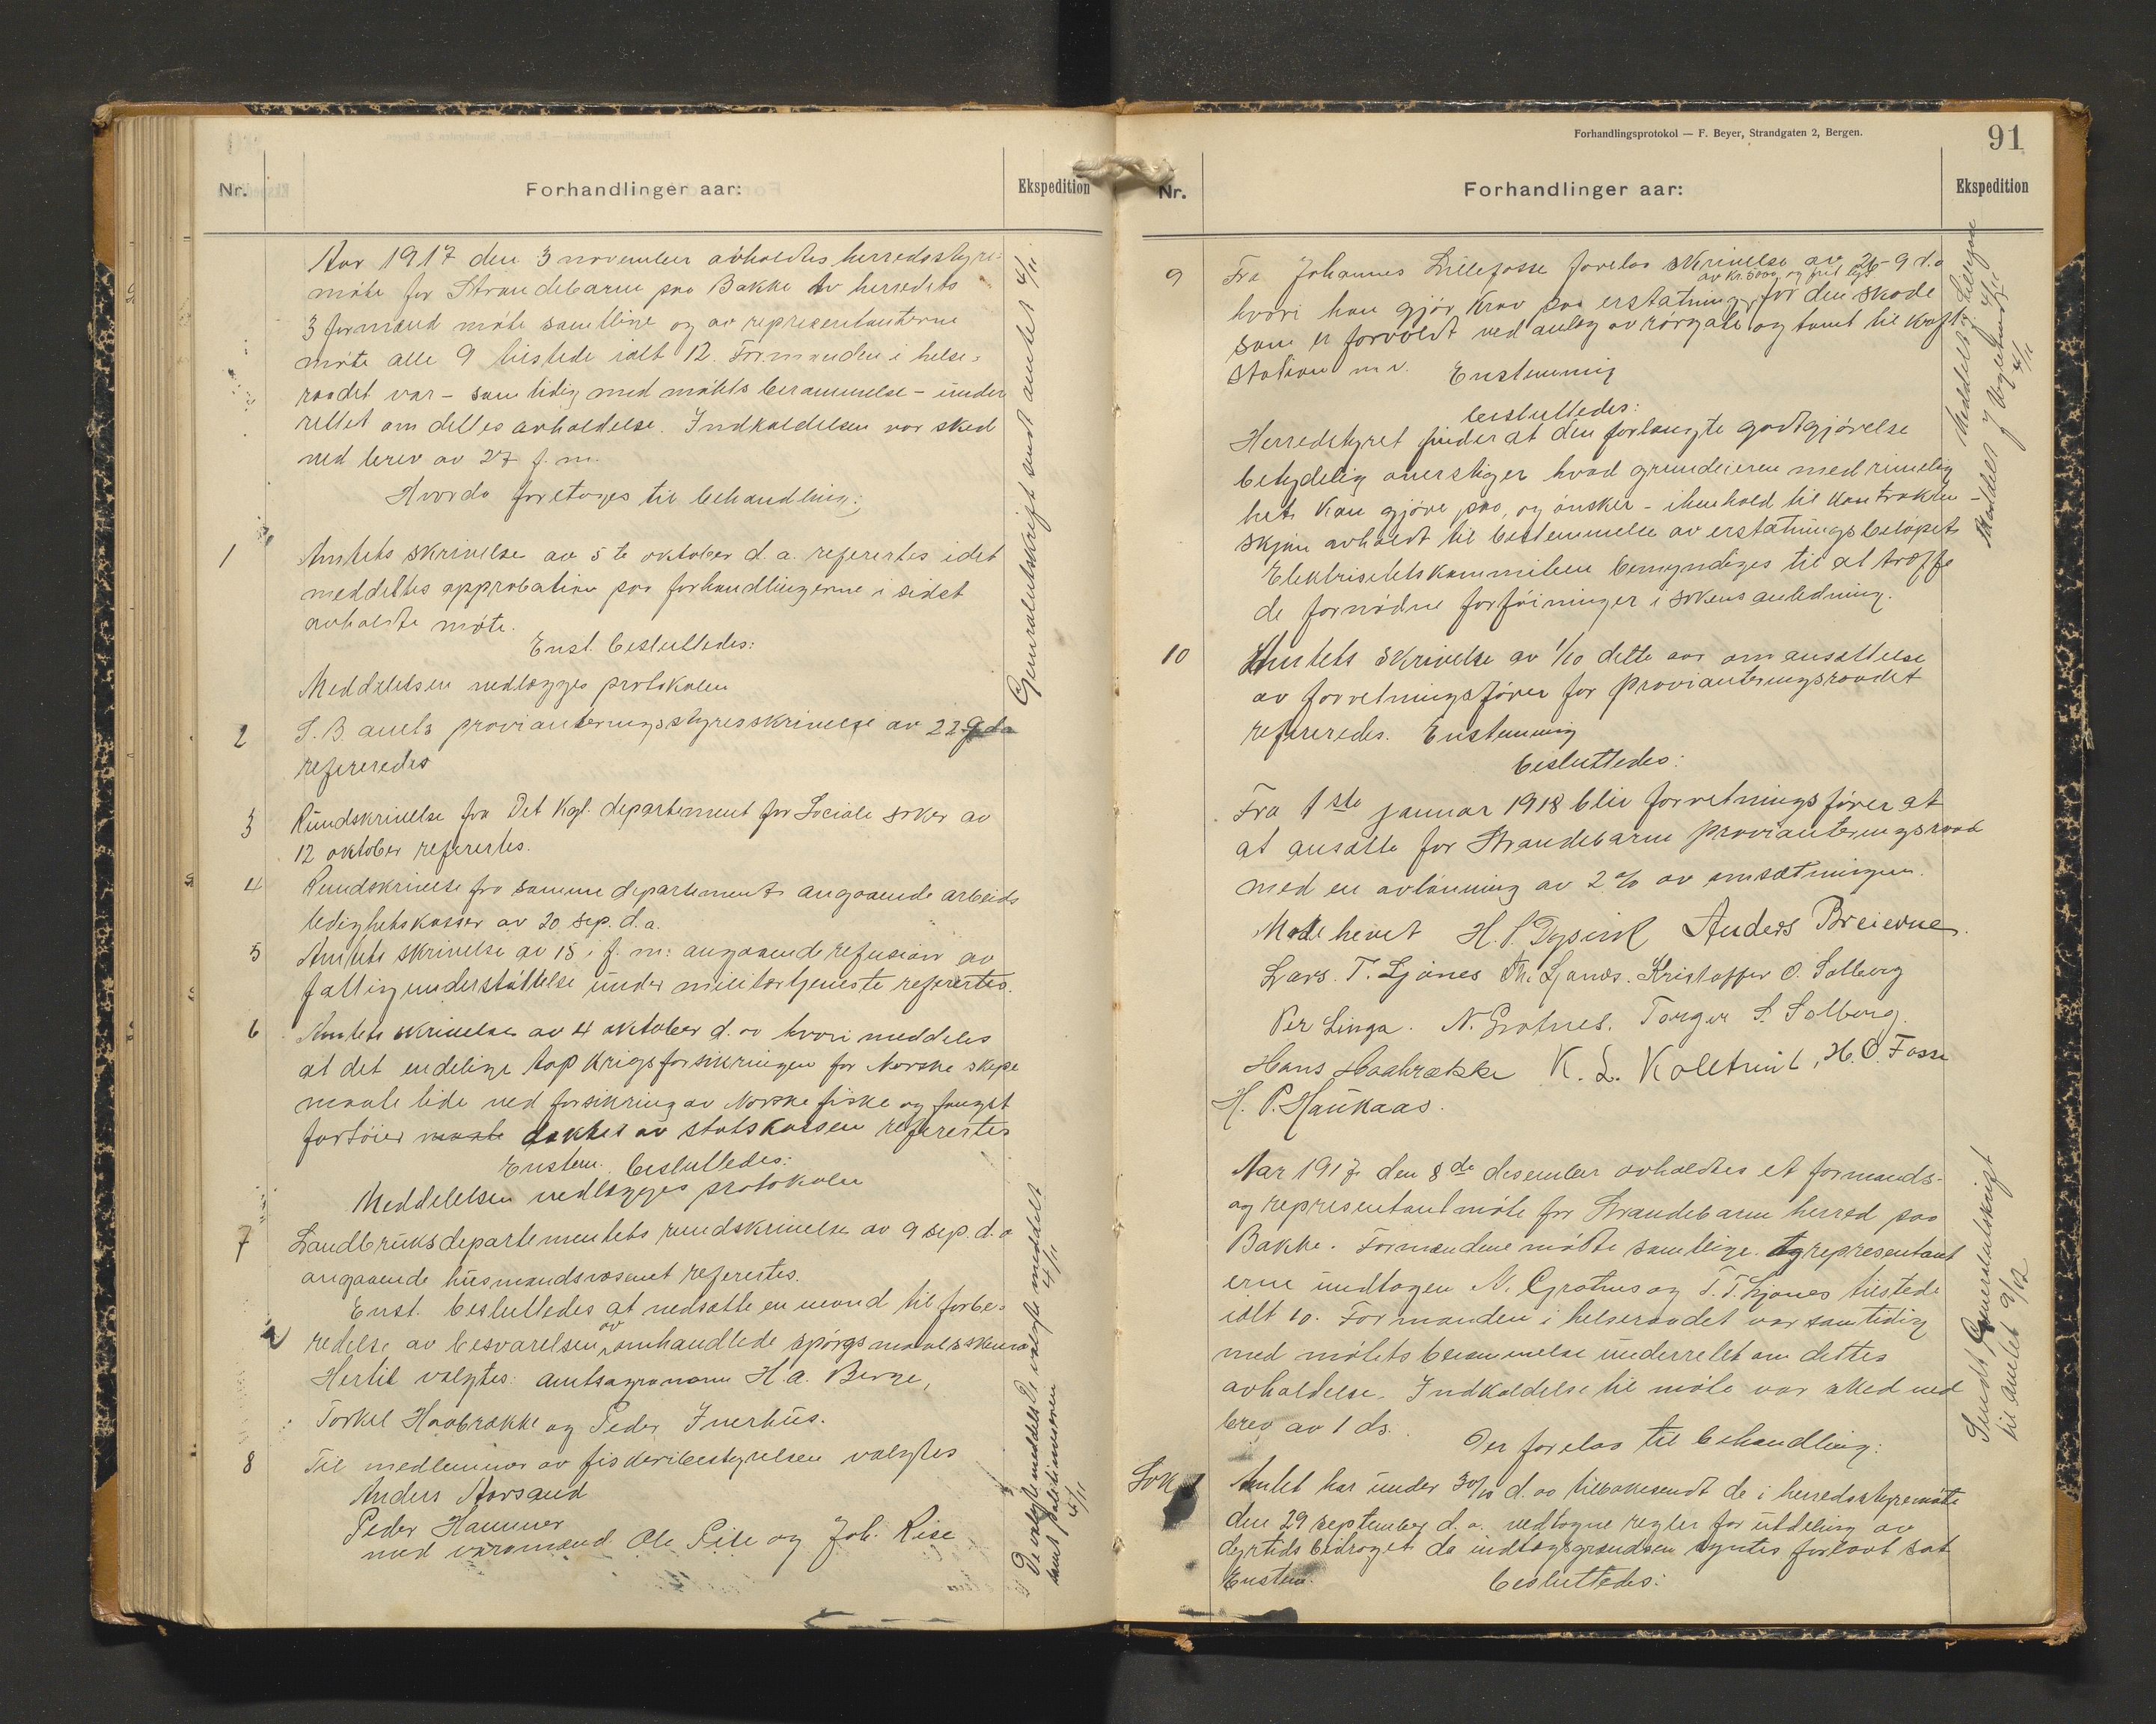 Nr.
Forhandlinger aar:
Ekspedition
Aar 1917 den 3 november avholdtes herredsstyre-
møte for Strandebarm paa Bakke Av herredets
3 formænd møtte samtlige og av representanterne
møtte alle 9 tilstede ialt 12. Formanden i helse-
raadet var - samtidig med møtets berammelse - under
rettet om dettes avholdelse. Indkaldelsen var sked
ved brev av 27 f. m.
Hvorda foretoges til behandling:
1 Amtets skrivelse av 5te oktober d.a. refererttes idet
meddeltes approbation paa forhandlingerne i sidst
avholdte møte.
Enst. besluttedes:
Meddelelsen vedlægges protokolen
2 S. B. amts provianteringsstyres skrivelse av 22 9 da
refereredes
3 Rundskrivelse fra Det Kgl. departement for Sociale saker av
12 oktober referertes.
4 Rundskrivelse fra samme departement angaaende arbeids
ledighetskasser av 20 sep. d.a.
5 Amtets skrivelse av 15 i f. m. angaaende refusion av
fattigunderstøttelse under militærtjeneste refererttes.
6 Amtets skrivelse av 4 oktober d. a hvori meddeles
at det endelige tap krigsforsikringen for Norske skipe
maatte lide ved forsikring av Norske fiske og fangst
fartøier maatte dækkes av statskassen refererttes
Enstem. besluttedes:
Meddelelsen vedlægges protokolen
7 Landbruksdepartementets rundskrivelse av 9 sep. d. a
angaaende husmandsvæsenet refererttes.
Enst. besluttedes at nedsætte en nevnd til forbe-
redelse av besvarelsen av omhandlede spørgsmaalsskema
Hertil valgtes: amtsagronom H. A. Berge,
Torkel Haabrække og Peder Inerhus.
8 Til medlemmer av fiskeribestyrelsen valgtes
Anders Aarsand
Peder Hammer
med varamænd Ole Site og Joh. Rise
Generalutskrift sendt amtet 4/11
De valgte meddelt 4/11
De valgte meddelt
samt politimesteren 5/11
Forhandlingsprotokol — F. Beyer, Strandgaten 2, Bergen.
91
Nr.
Forhandlinger aar:
Ekspedition
9 Fra Johannes Lillefosse forelaa skrivelse av 26-9 d.a
av kr. 5000 og frit lys
hvori han gjør krav paa erstatning for den skade
som er forvoldt ved anlæg av rørgate og tomt til kraft
station m v. Enstemmig
besluttedes:
Herredstyret finder at den forlangte godtgjørelse
betydelig overstiger hvad grundeieren med rimelig
het kan gjøre paa, og ønsker - i henhold til kontrakten -
skjøn avholdt til bestemmelse av erstatningsbeløpet
Elektrisitetskommiteen bemyndiges til at træffe
de fornødne forføininger i sakens anledning.
10 Amtets skrivelse av 1/10 dette aar om ansættelse
av forretningsfører for provianteringsraadet
refereredes. Enstemmig
besluttedes:
Fra 1ste januar 1918 blir forretningsfører at
at ansætte for Strandebarm provianteringsraad
med en avlønning av 2 % av omsætningen.
Møde hevet H. P. Dysvik Anders Breievne.
Lars. T. Ljones Th. Ljones. Kristoffer O. Solberg
Per Linga. N. Grotnes. Torger S. Solberg.
Hans Haabrække K. L. Koltveit, H. O. Fosse
H. P. Haukaas.
Aar 1917 den 8de desember avholdtes et formands-
og representantmøte for Strandebarm herred paa
Bakke. Formændene møtte samtlige. Og representant
erne undtagen N. Grotnes og T. T. Ljones tilstede
ialt 10. Formanden i helseraadet var samtidig
med møtets berammelse underrettet om dettes
avholdelse. Indkaldelse til møte var sked ved
brev av 1 ds.
Der forelaa til behandling:
Sak 1 Amtet har under 30/10 d. aa tilbakesendt de i herredsstyremøte
den 29 september d. a. vedtagne regler for utdeling av
dyrtidsbidraget da indtægtsgrændsen syntes for lavt sat
Enstem. besluttedes:
Meddelt J. Lillefosse
Meddelt 4/11
4/11
Sendt Generalutskrift
til amtet 9/12